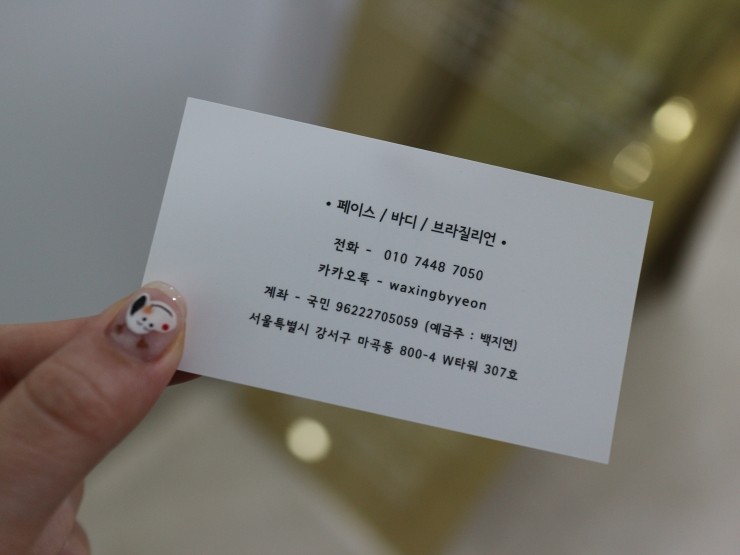 • 페이스 / 바디 / 브라질리언 •
전화 - 010 7448 7050
카카오톡 - waxingbyyeon
계좌 - 국민 96222705059 (예금주 : 백지연)
서울특별시 강서구 마곡동 800-4 W타워 307호